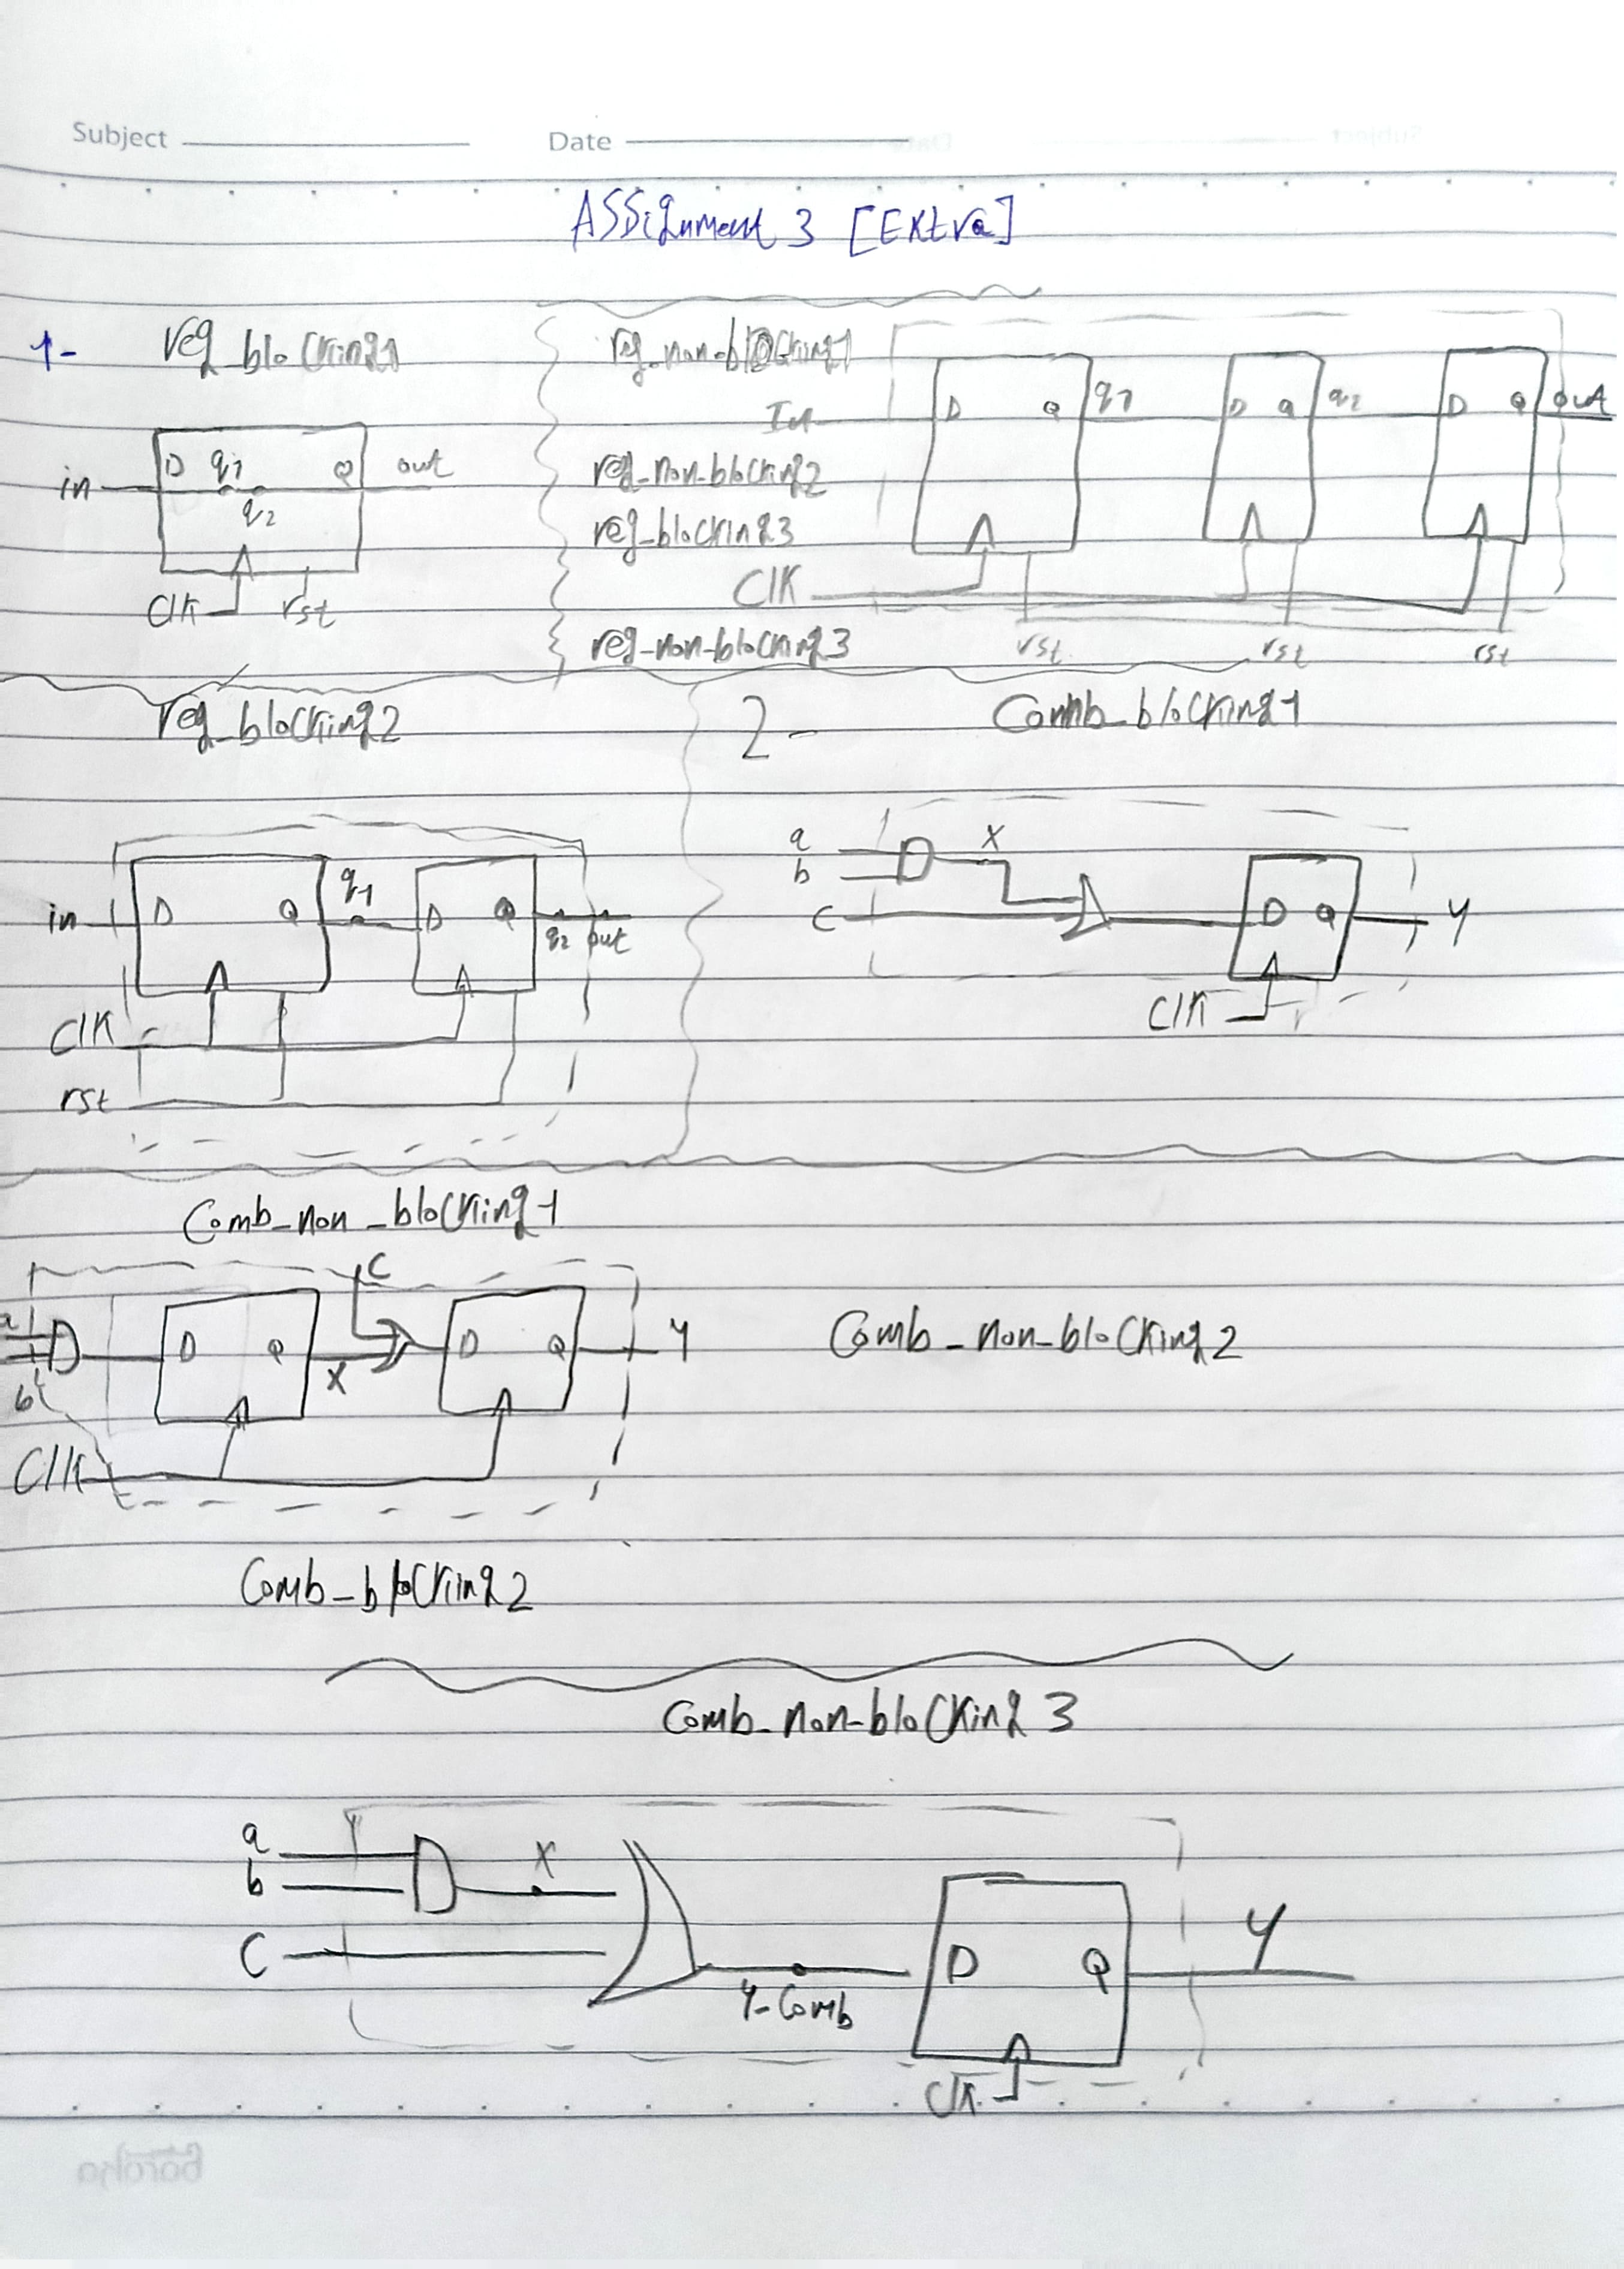 Subject Date
ASSignment 3 [Extra]
1- reg_blocking1
D q1 Q
in out
q2
Clk rst
reg_non-blocking1
In D Q q1 D Q q2 D Q out
reg_non-blocking2
reg_blocking3
Clk
rst rst rst
reg-non-blocking3
reg_blocking2
in D Q q1 D Q q2 out
Clk
rst
2- Comb_blocking1
a
b
x
C D Q y
Clk
Comb_non_blocking1
C
a D Q x D Q y
b
Clk
Comb_non_blocking2
Comb_blocking2
Comb_non_blocking3
a
b
x
C
y-Comb
D Q y
Clk
baraka